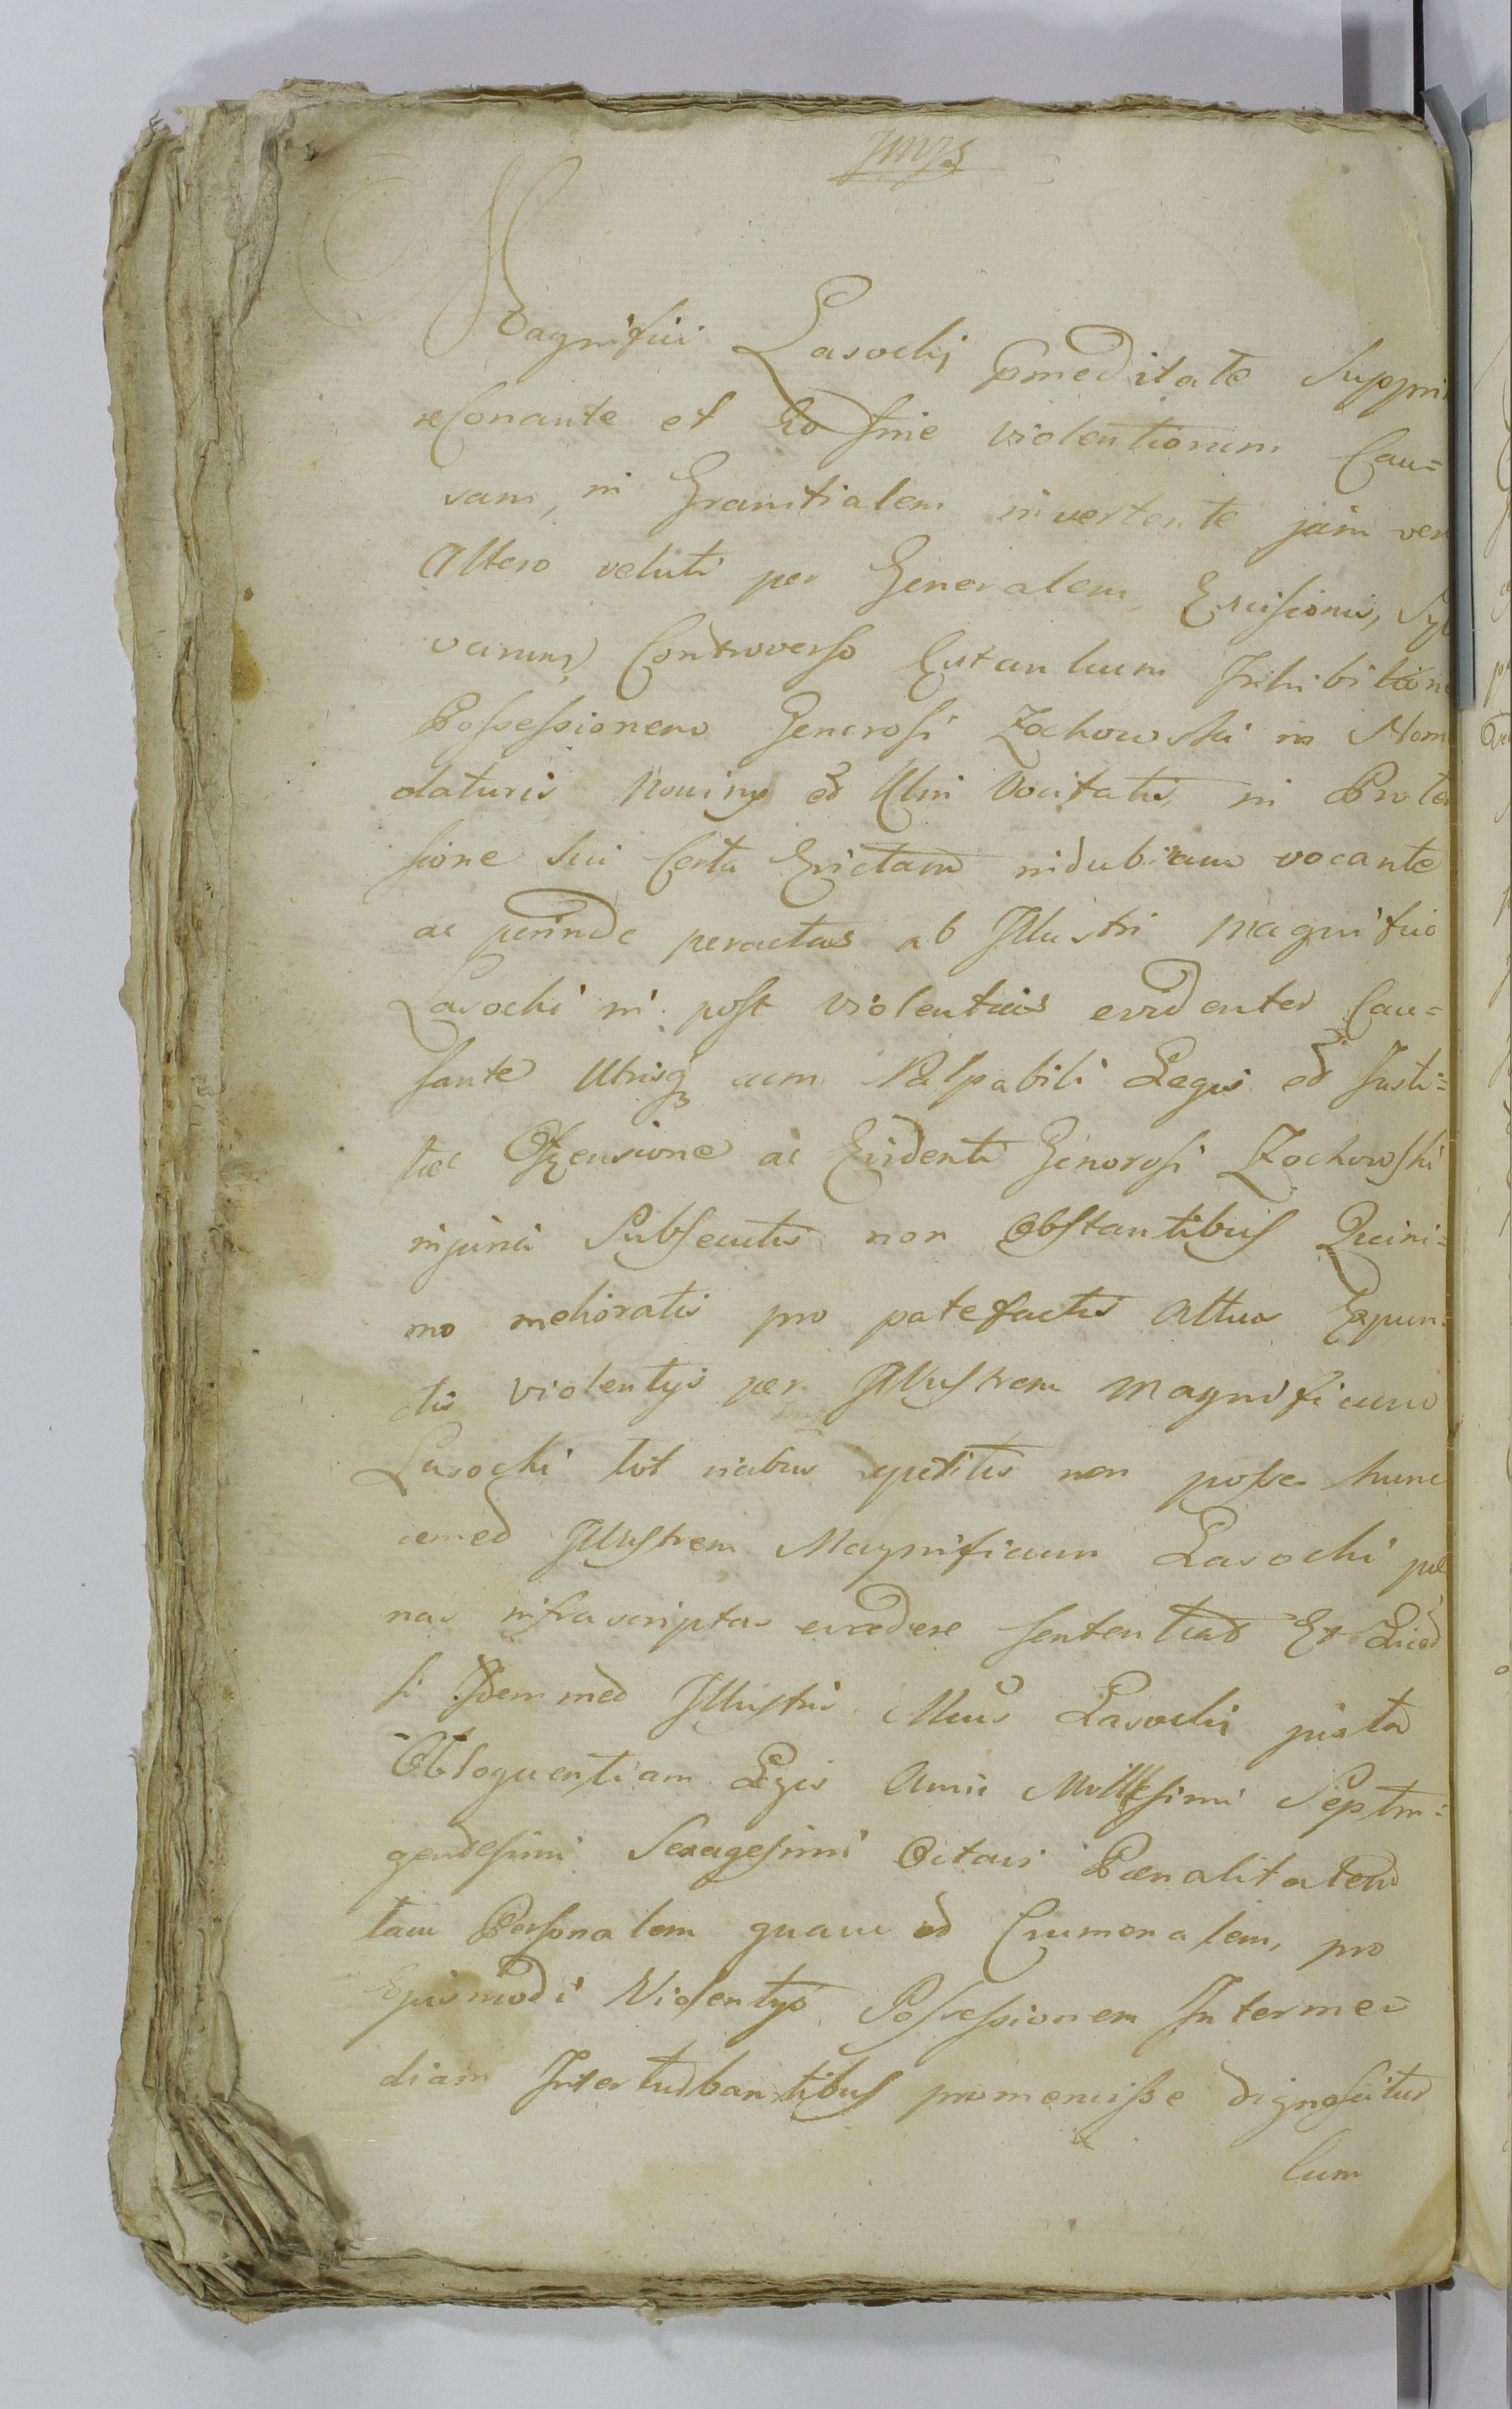 Magnifici Lasocki præmeditate Suppri
resonante et Eo fine violentiarum Cau=
sam, in Granitialem invertente jam ver
Altero veluti per Generalem, Excisionis, Syl
varum, Controverso tantum Inhibitione
Possessionem Generosi Zochowski in Nom
claturis Nowiny et Ulin Vocitatis, in Prote
sione sui Certa indubiam vocante
ac perinde peractas ab Illustri Magnifico
Lasocki in post violentias evidenter Cau=
sante Utrisq cum Palpabili Legis et Justi=
tiæ Offensione ac Evidenti Generosi Zochowski
injuria Subsecutis non Obstantibus Quini=
mo melioratis pro patefactis Altius Expun=
ctis violentys per Illustrem Magnificum
Lasocki tot vicibus repetitis non posse hunc
cemed Illustrem Magnificum Lasocki pæ
nas infrascriptas evadere sententiat Et Quod
si Idemmed Illustris Mcus Lasocki juxta
Obloquentiam Legis Anni Millesimi Septin=
gentesimi Sexagesimi Octavi Pœnalitatem
tam Personalem quam et Crumenalem, pro
Ejusmodi Violentys Possessionem Interme=
diam Interturbantibus promeruisse dignoscitur
Cum